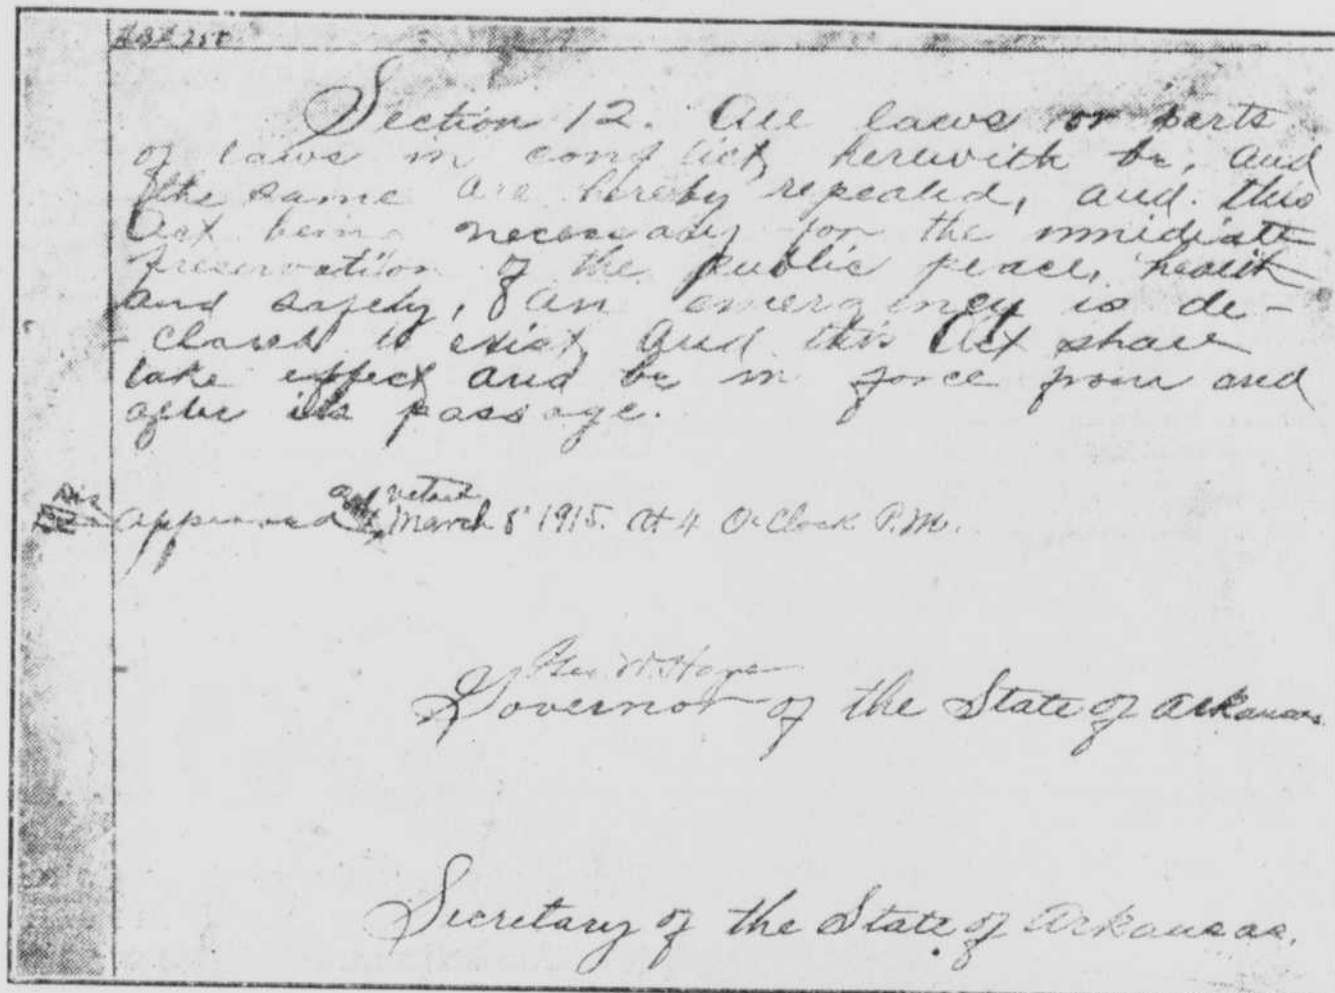 Section 12. All laws or parts
of laws in conflict herewith be, and
the same are hereby repealed, and this
Act being necessary for the immidiate
preservation of the public peace, health
and safety, an emergency is de-
clared to exist and this Act shall
take effect and be in force from and
after its passage.
Dis
approved and vetoed March 8 1915. At 4 O'Clock P.M.
Geo. W. Hays
Governor of the State of Arkansas.
Secretary of the State of Arkansas.